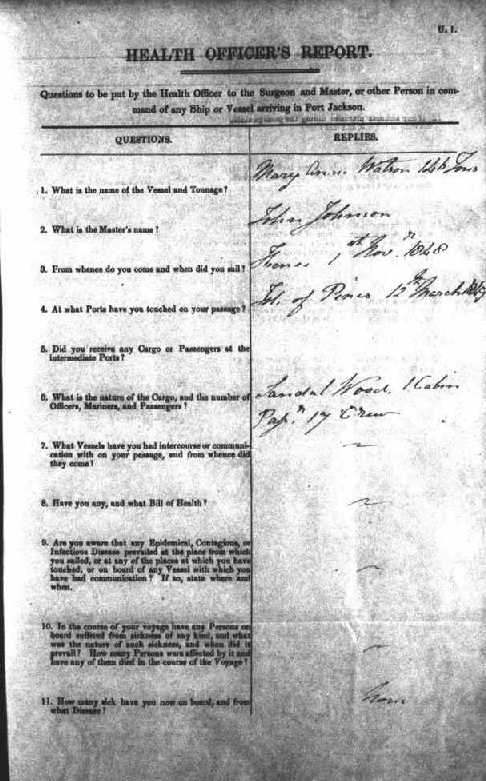 U. 1.
HEALTH OFFICER'S REPORT.
Questions to be put by the Health Officer to the Surgeon and Master, or other Person in com-
mand of any Ship or Vessel arriving in Port Jackson.
QUESTIONS.
REPLIES.
1. What is the name of the Vessel and Tonnage?
Mary Ann Watson 146 Tons
2. What is the Master's name?
John Johnson
3. From whence do you come and when did you sail?
1st Nov. 1848
4. At what Ports have you touched on your passage?
Isl. of Pines 12 March
5. Did you receive any Cargo or Passengers at the
Intermediate Ports?
6. What is the nature of the Cargo, and the number of
Officers, Mariners, and Passengers?
Sandal Wood, 1 Cabin
Pass. 17 Crew
7. What Vessels have you had intercourse or communi-
cation with on your passage, and from whence did
they come?
8. Have you any, and what Bill of Health?
9. Are you aware that any Epidemical, Contagious, or
Infectious Disease prevailed at the place from which
you sailed, or at any of the places at which you have
touched, or on board of any Vessel with which you
have had communication? If so, state where and
when.
10. In the course of your voyage have any Persons on
board suffered from sickness of any kind, and what
was the nature of such sickness, and when did it
prevail? How many Persons were affected by it and
have any of them died in the course of the Voyage?
11. How many sick have you now on board, and from
what Disease?
None